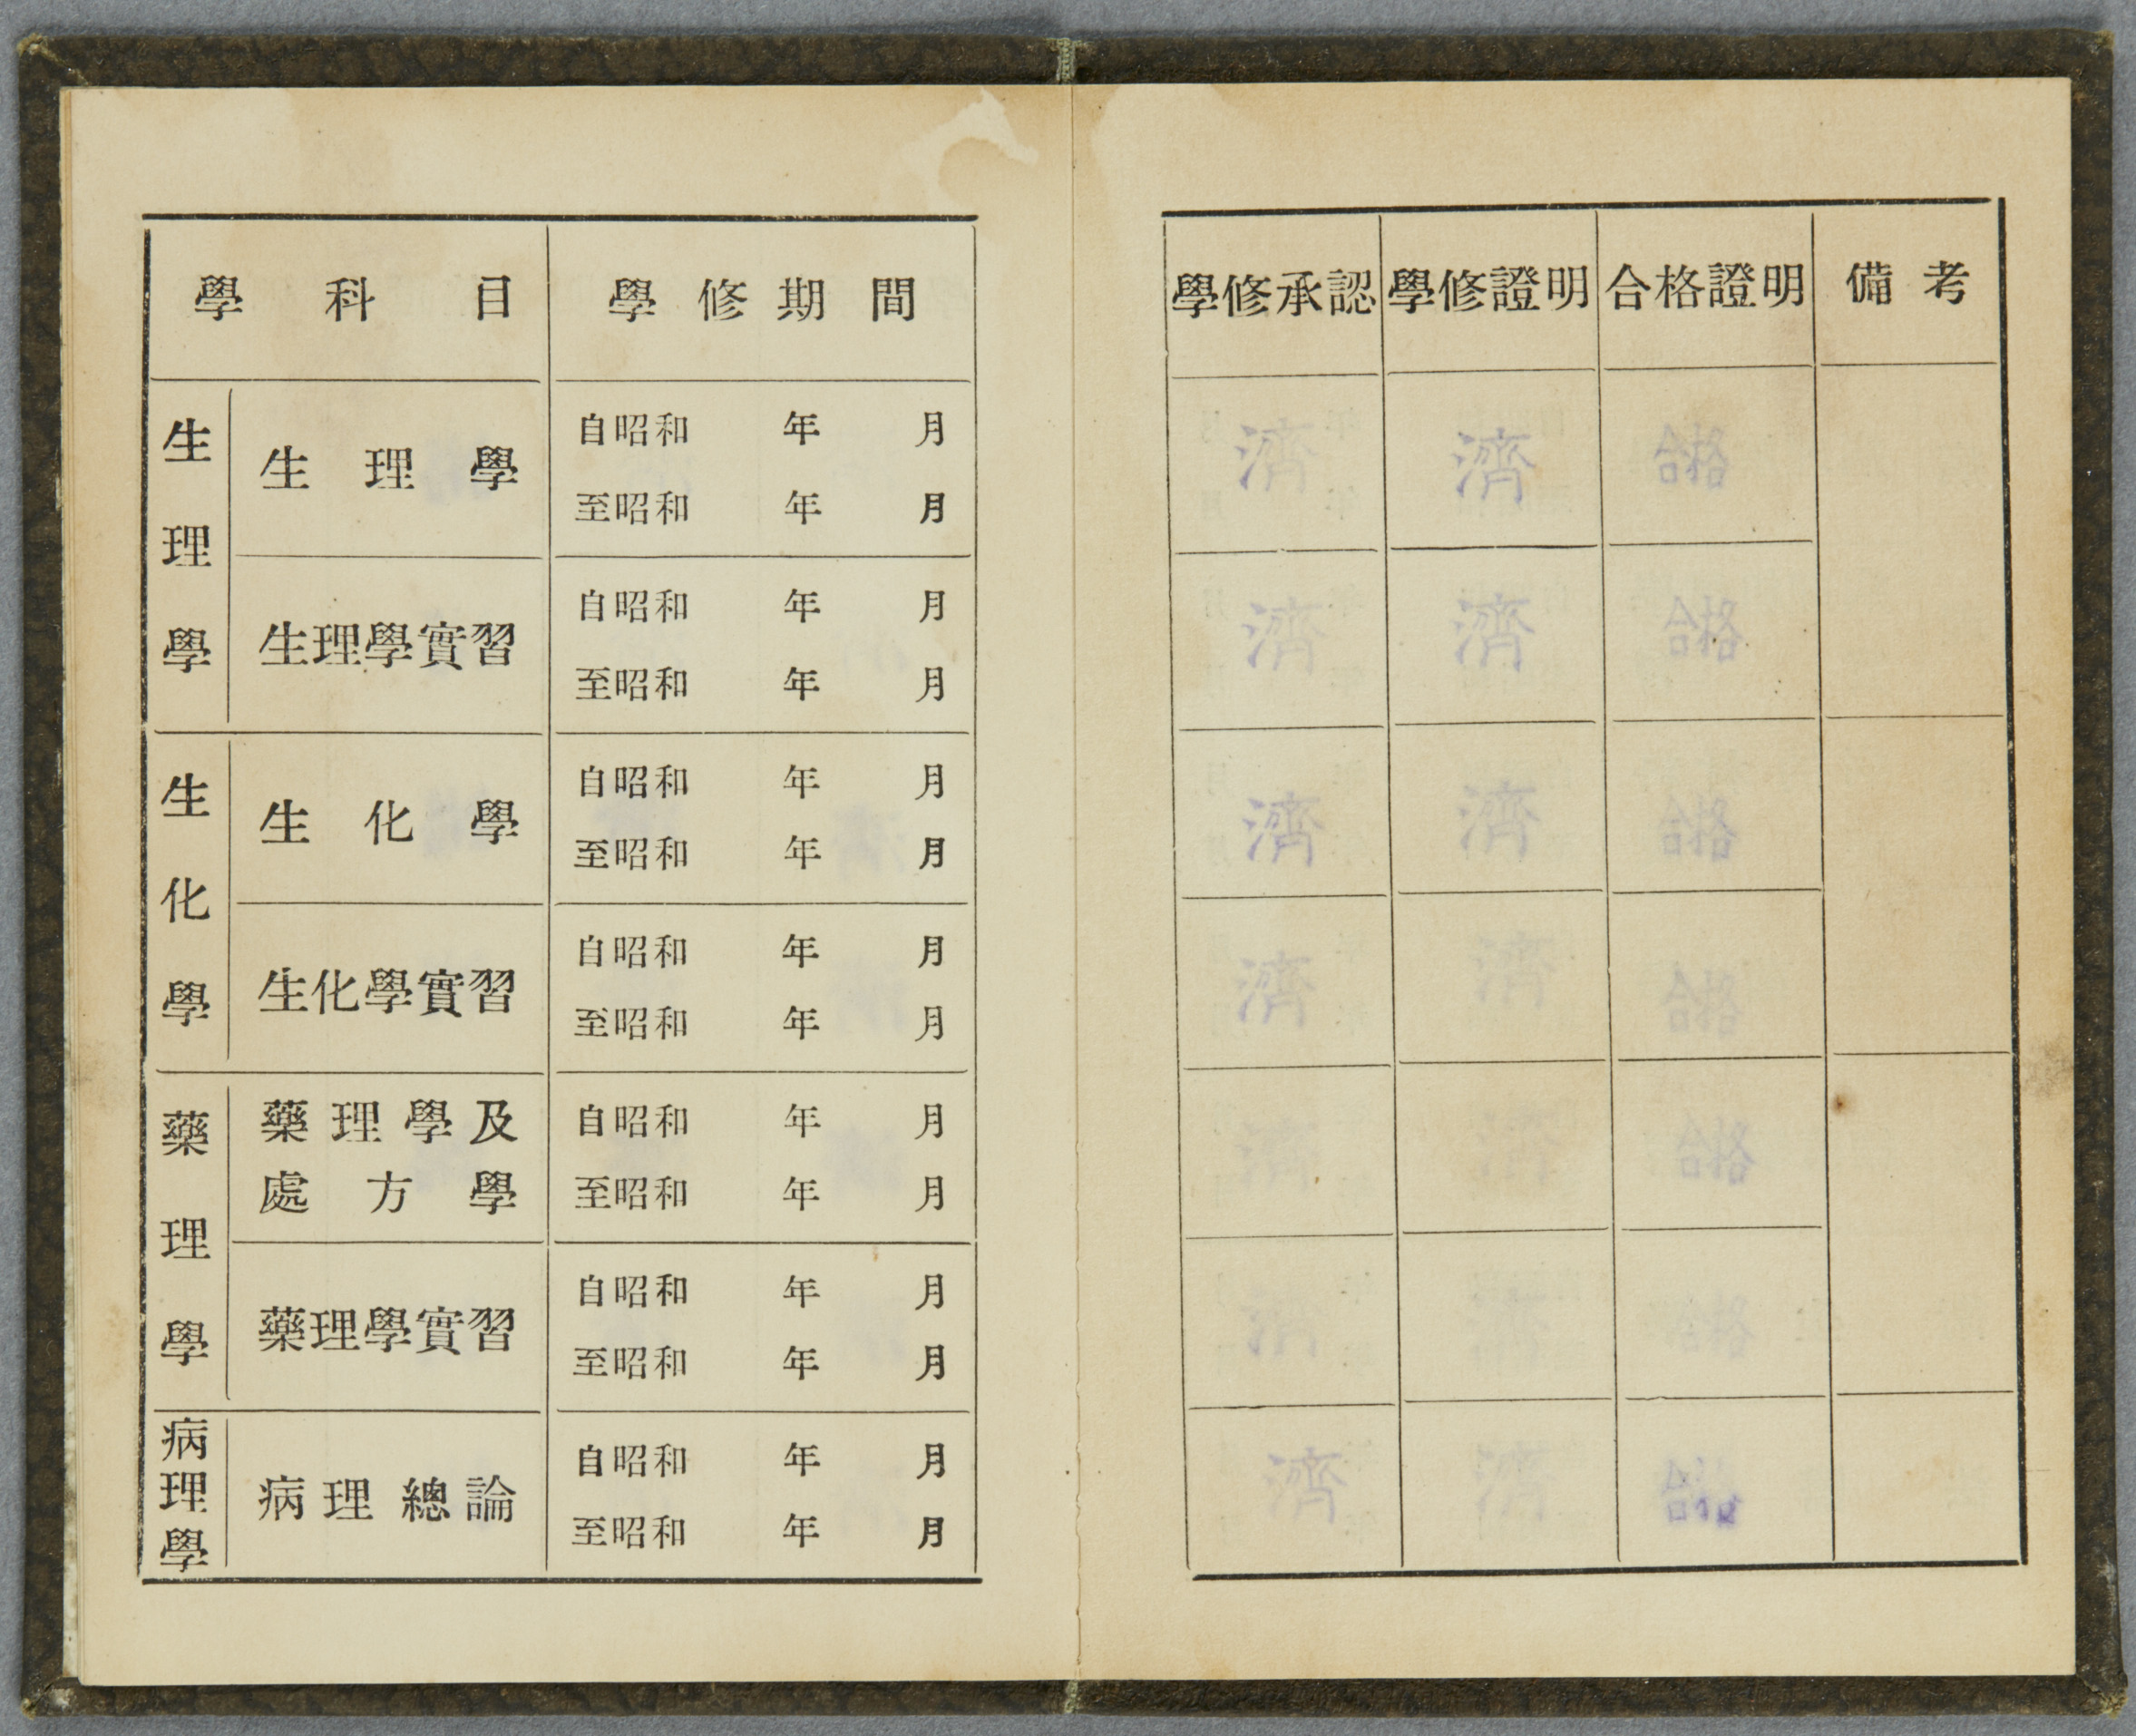 學科目 學修期間 學修承認 學修證明 合格證明 備考
生理學 生理學 自昭和 年 月 濟 濟 合格
至昭和 年 月
生理學實習 自昭和 年 月 濟 濟 合格
至昭和 年 月
生化學 生化學 自昭和 年 月 濟 濟 合格
至昭和 年 月
生化學實習 自昭和 年 月 濟 濟 合格
至昭和 年 月
藥理學 藥理學及 自昭和 年 月 濟 濟 合格
處方學 至昭和 年 月
藥理學實習 自昭和 年 月 濟 濟 合格
至昭和 年 月
病理學 病理總論 自昭和 年 月 濟 濟 合格
至昭和 年 月